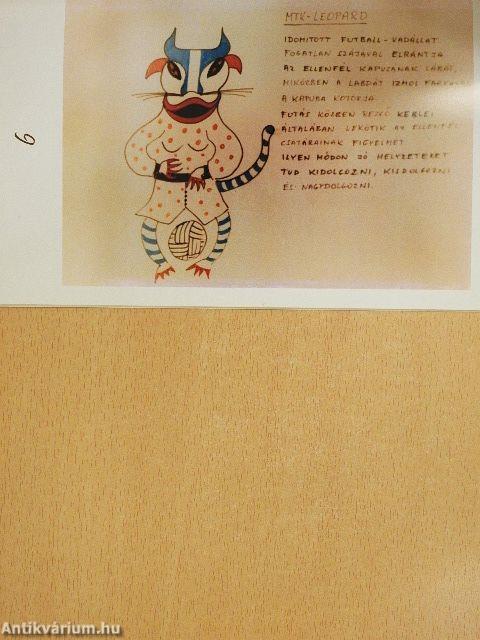 MTK-LEOPÁRD
IDOMITOTT FUTBALL-VADÁLLAT.
FOGATLAN SZÁJÁVAL ELRÁNTJA
AZ ELLENFÉL KAPUSÁNAK LÁBÁT,
MIKÖZBEN A LABDÁT IZMOS
A KAPUBA KOTORJA.
FUTÁS KÖZBEN REZGŐ KEBLEI
ÁLTALÁBAN LEKÖTIK AZ ELLENFÉL
CSATÁRAINAK FIGYELMÉT
ILYEN MÓDON JÓ HELYZETEKET
TUD KIDOLGOZNI, KISDOLGOZNI
ÉS NAGYDOLGOZNI.
6
Antikvárium.hu